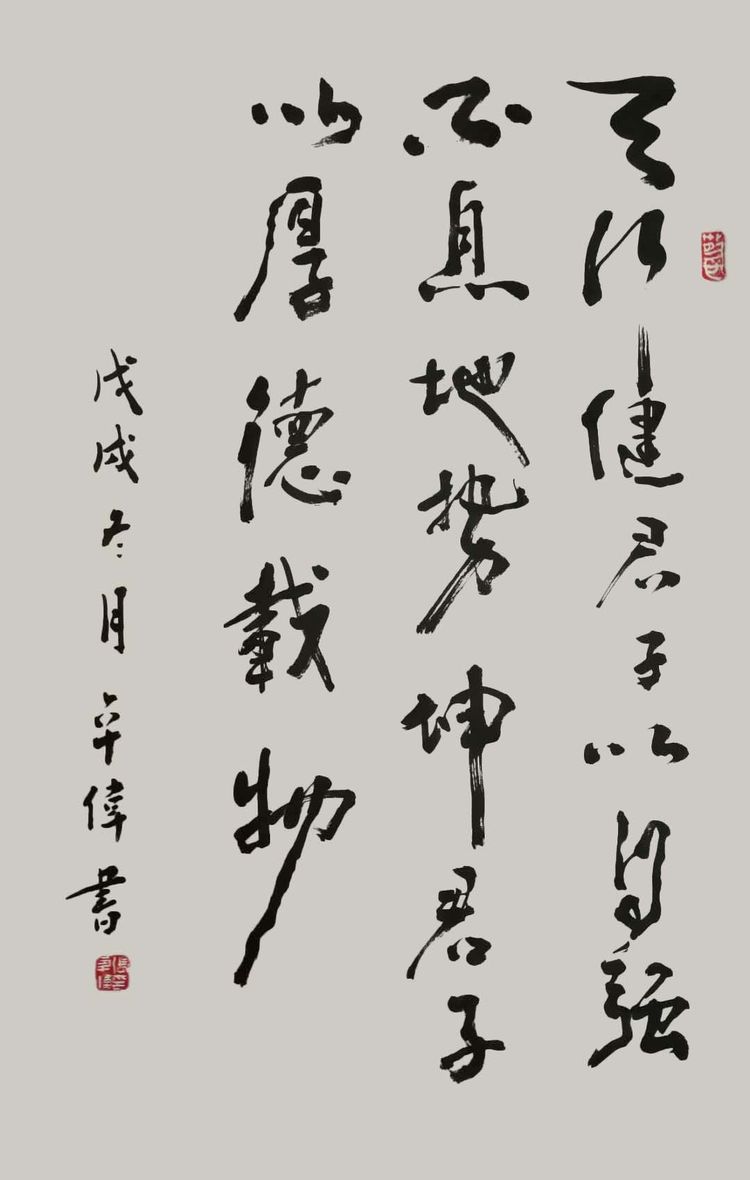 天行健君子以自強
不息地势坤君子
以厚德載物
戊戌冬月偉書